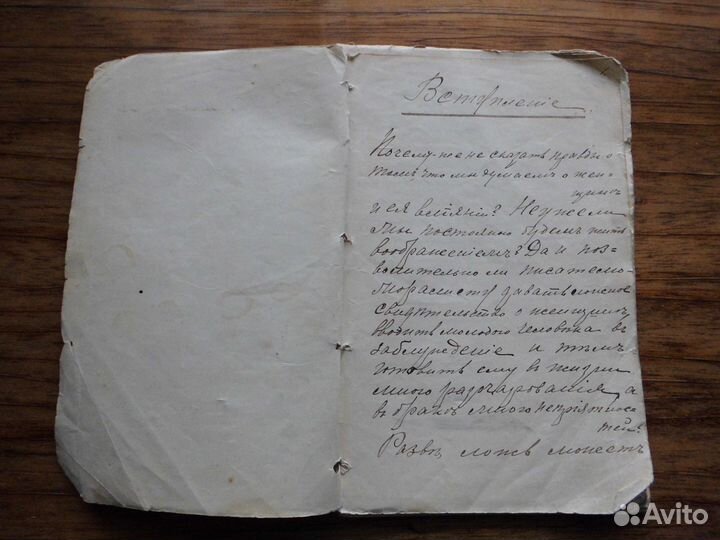 Вступленіе
Почему-же не сказать правды о
томъ, что мы думаемъ о жен-
щинѣ
и ея вліяніи? Неужели
мы постоянно будемъ жить
воображеніемъ? Да и поз-
волительно ли писателю-
моралисту давать ложное
свидѣтельство о женщинѣ,
вводить молодого человѣка въ
заблужденіе и тѣмъ
готовить ему въ жизни
много разочарованія, а
въ бракѣ много непріятнос-
тей?
Развѣ ложь можетъ
Avito